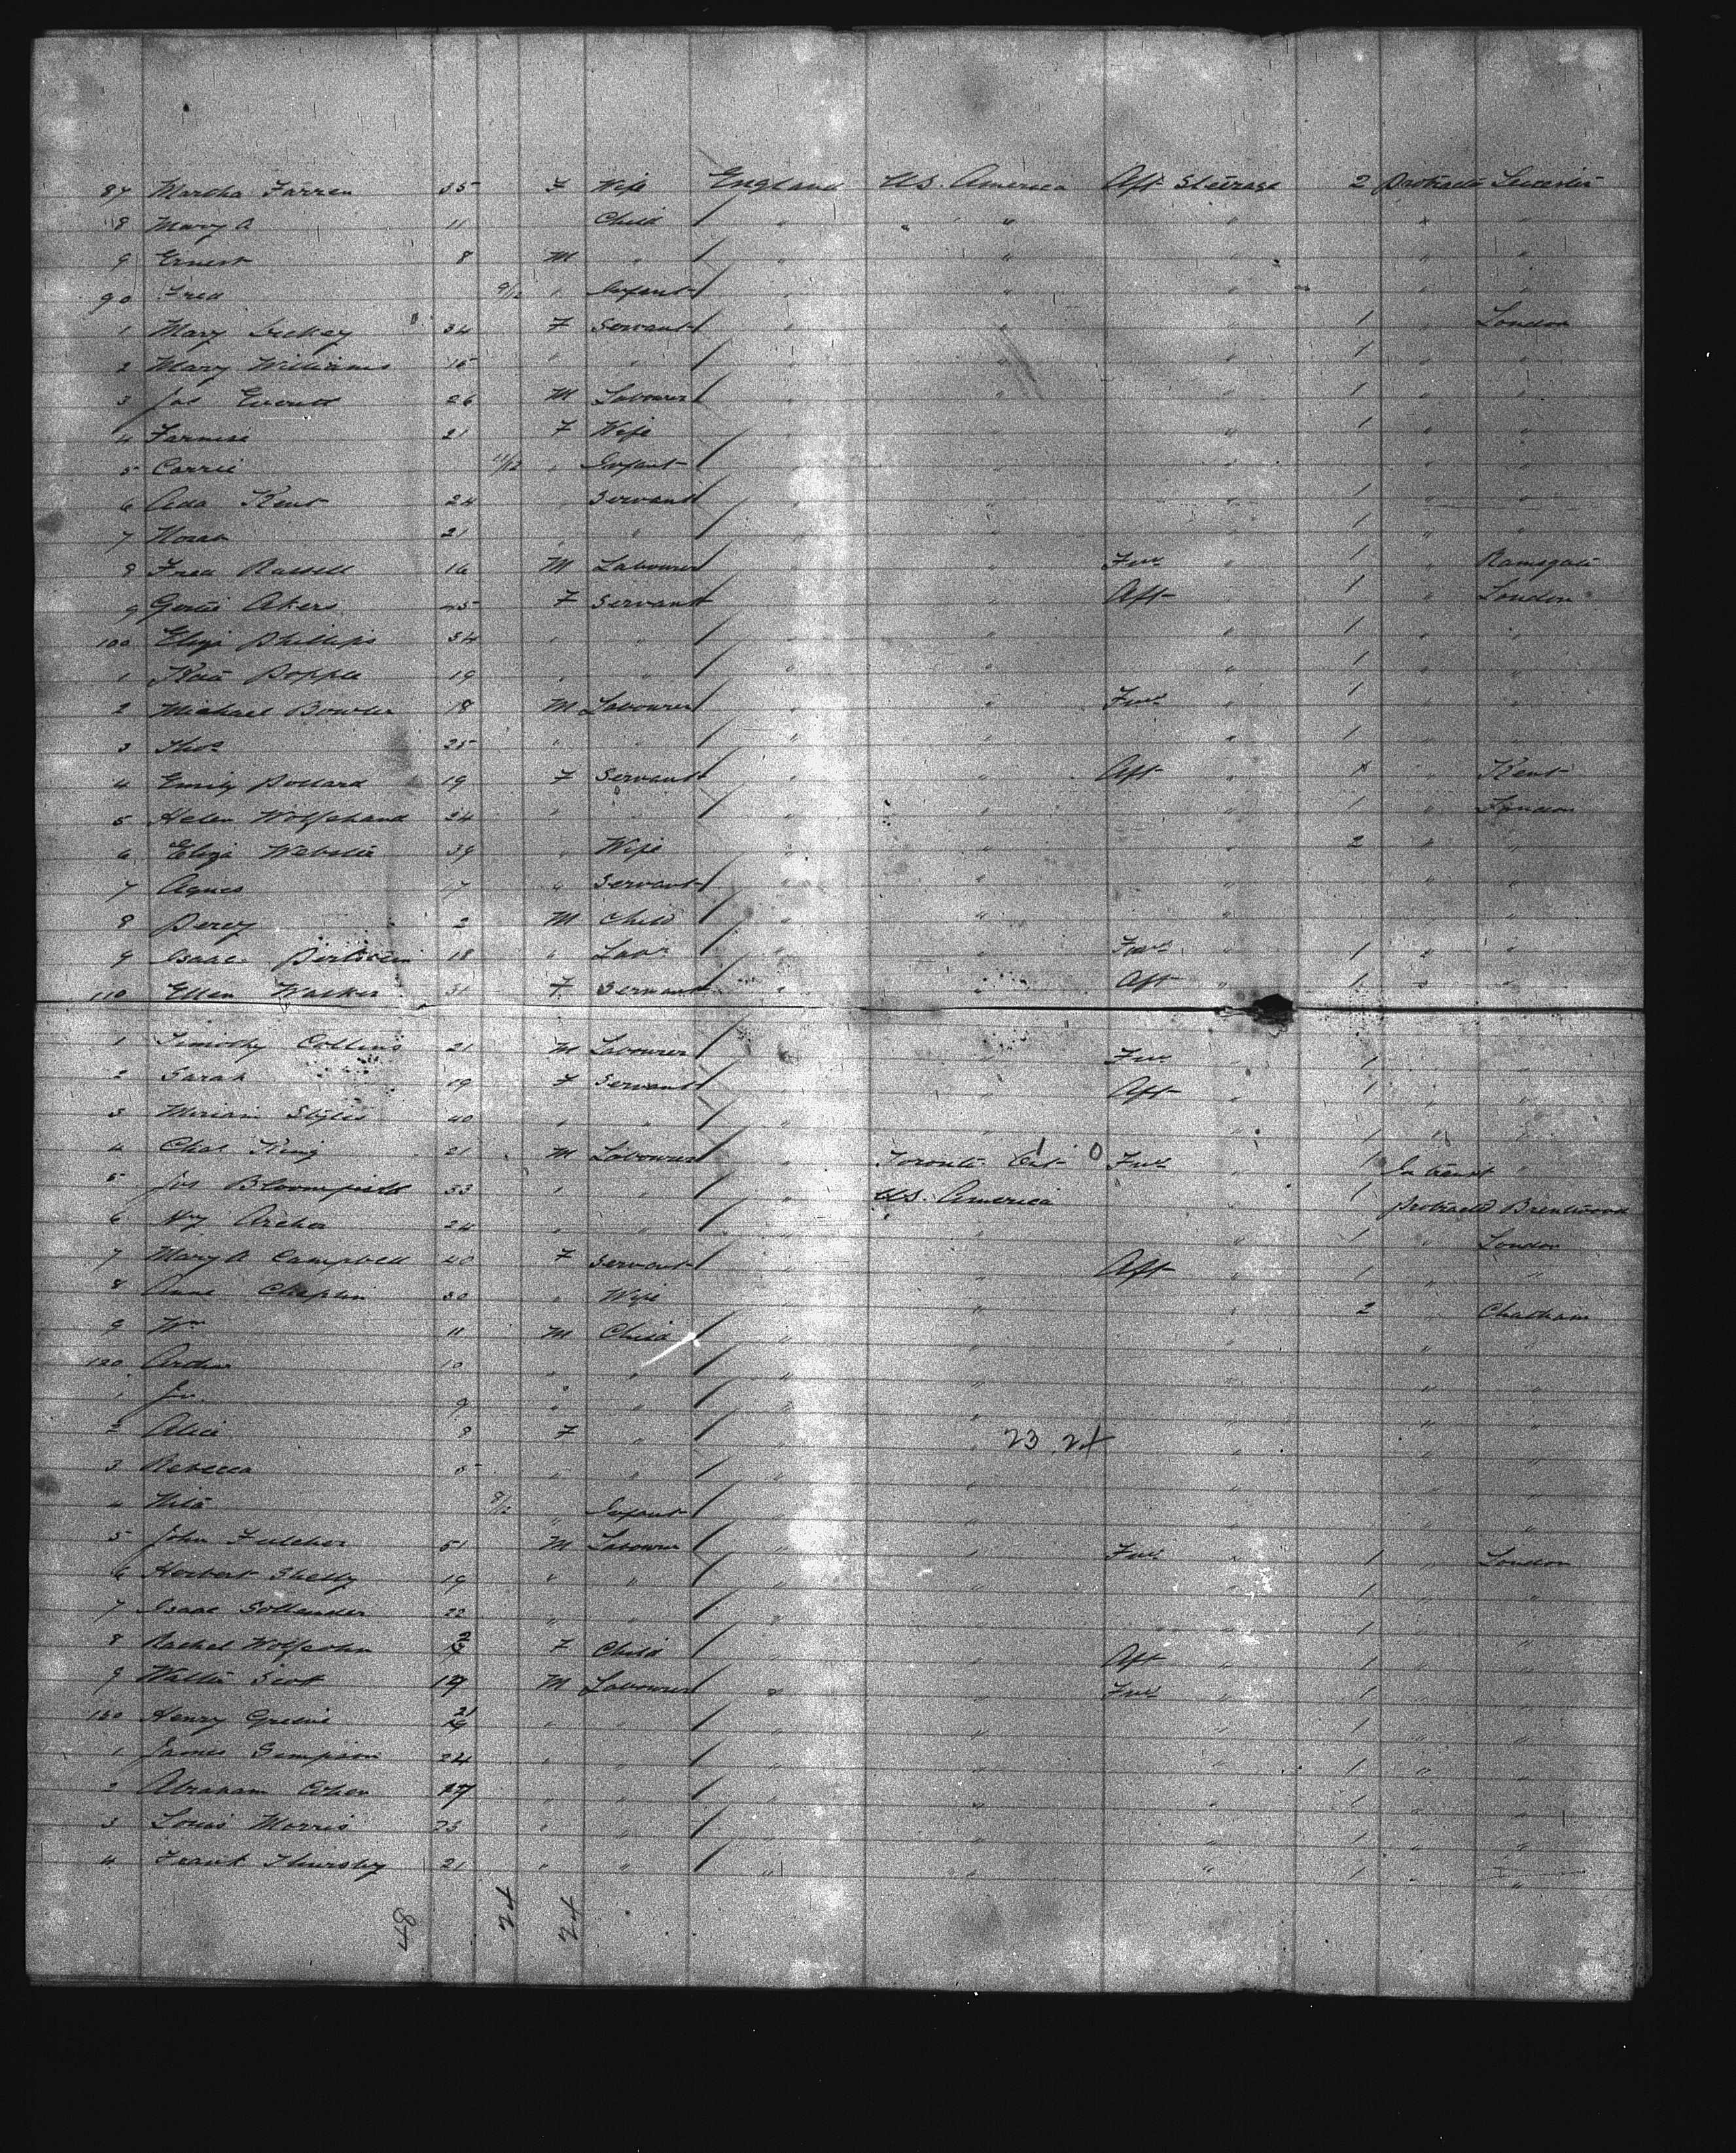 87 Martha Farren 35 F Wife England U.S. America Aft Steerage 2 Protracted Leicester
8 Mary A 11 Child / " " " " "
9 Ernest 8 M " / " " " " "
90 Fred 9/12 " Infant / " " " " "
1 Mary 34 F Servant / " " " 1 " London
2 Mary Williams 15 " " / " " " 1 " "
3 Jas Everett 26 M Labourer / " " " 1 " "
4 21 F Wife " " " 1 " "
5 Carrie 11/12 " Infant / " " " " "
6 Ada Kent 24 " Servant / " " " 1 " "
7 Norah 21 " " / " " " 1 " "
8 Fred Russell 16 M Labourer / " " Fwd " 1 " Ramsgate
9 Gertie Akers 25 F Servant " " Aft " 1 " London
100 Eliza Phillips 34 " " / " " " 1 " "
1 Kate Popple 19 " " / " " " 1 " "
2 Michael Bowler 18 M Labourer / " " Fwd " 1 " "
3 Thos 25 " " / " " " 1 " "
4 Emily Pollard 19 F Servant " " Aft " 1 " Kent
5 Helen 24 " " / " " " 1 " London
6 Eliza Webster 39 " Wife " " " 2 " "
7 Agnes 17 " Servant / " " " " "
8 Percy 2 M Child / " " " " "
9 Isaac 18 " Labr / " " Fwd " 1 " "
110 Ellen Walker 31 F Servant " " Aft " 1 " "
1 Timothy Collins 21 M Labourer / " Fwd " 1 " "
2 Sarah 19 F Servant / " Aft " 1 " "
3 Miriam Styles 40 " " / " " " 1 " "
4 Chas King 21 M Labourer / " Toronto 1 0 Fwd " 1 In transit "
5 Jos Bloomfield 33 " " / " U.S. America " 1 Protracted Brentwood
6 Hy Archer 24 " " / " " " 1 " London
7 Mary A Campbell 40 F Servant / " " Aft " 1 " "
8 Anne Chaplin 30 " Wife " " " 2 " Chatham
9 Wm 11 M Child / " " " " "
120 Arthur 10 " " / " " " " "
1 9 " " / " " " " "
2 Alice 8 F " / " " 23 24 " " "
3 Rebecca 5 " " / " " " " "
4 " Infant / " " " " "
5 John Fulcher 51 M Labourer / " " Fwd " 1 " London
6 Herbert Shelly 19 " " / " " " 1 " "
7 Isaac Sollender 22 " " / " " " 1 " "
8 Rachel Wolfsohn F Child / " " Aft " 1 " "
9 Walter Scot 19 M Labourer / " " Fwd " 1 " "
130 Henry Greene 21 " " / " " " 1 " "
1 James Simpson 24 " " / " " " 1 " "
2 Abraham Cohen 27 " " / " " " 1 " "
3 Louis Morris 23 " " / " " " 1 " "
4 Frank Thursby 21 " " / " " " 1 " "
48 24 24